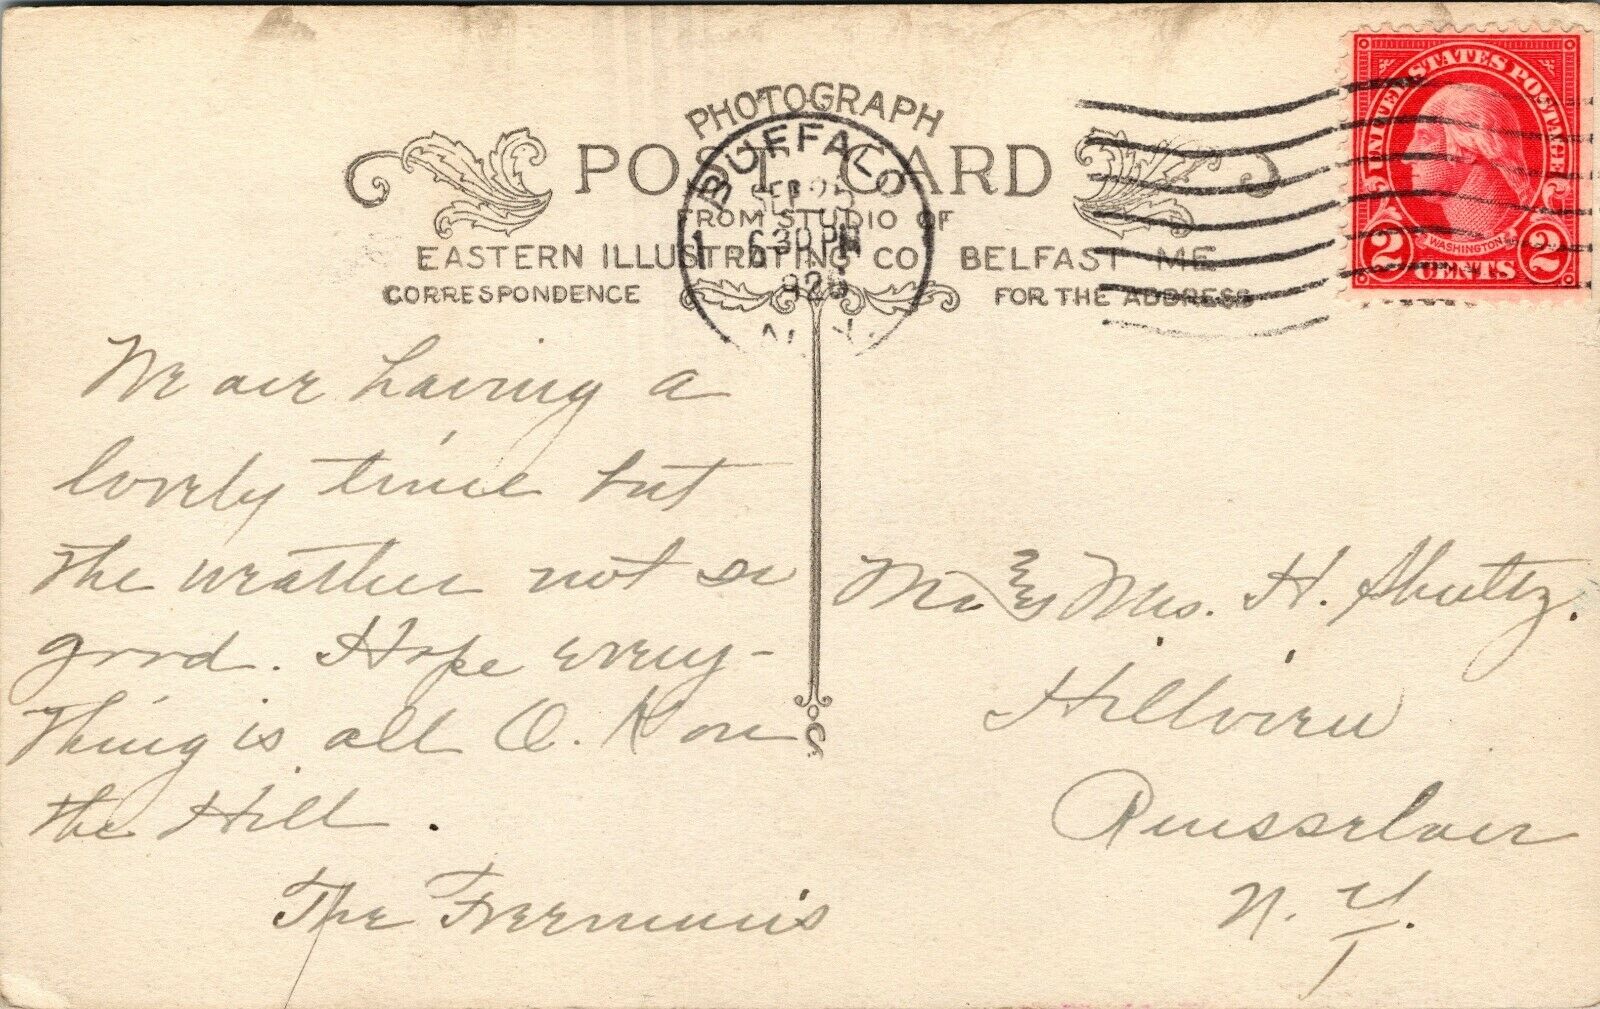 PHOTOGRAPH
POST CARD
FROM STUDIO OF
EASTERN ILLUSTRATING CO. BELFAST ME
CORRESPONDENCE
FOR THE ADDRESS
BUFFALO
SEP 25
630 PM
N.Y.
UNITED STATES POSTAGE
WASHINGTON
2 CENTS 2
We are having a
lovely time but
the weather not so
good. Hope every-
thing is all O.K on
the Hill.
The
Mr & Mrs. H. Shultz.
Hillview
Rensselaer
N. Y.